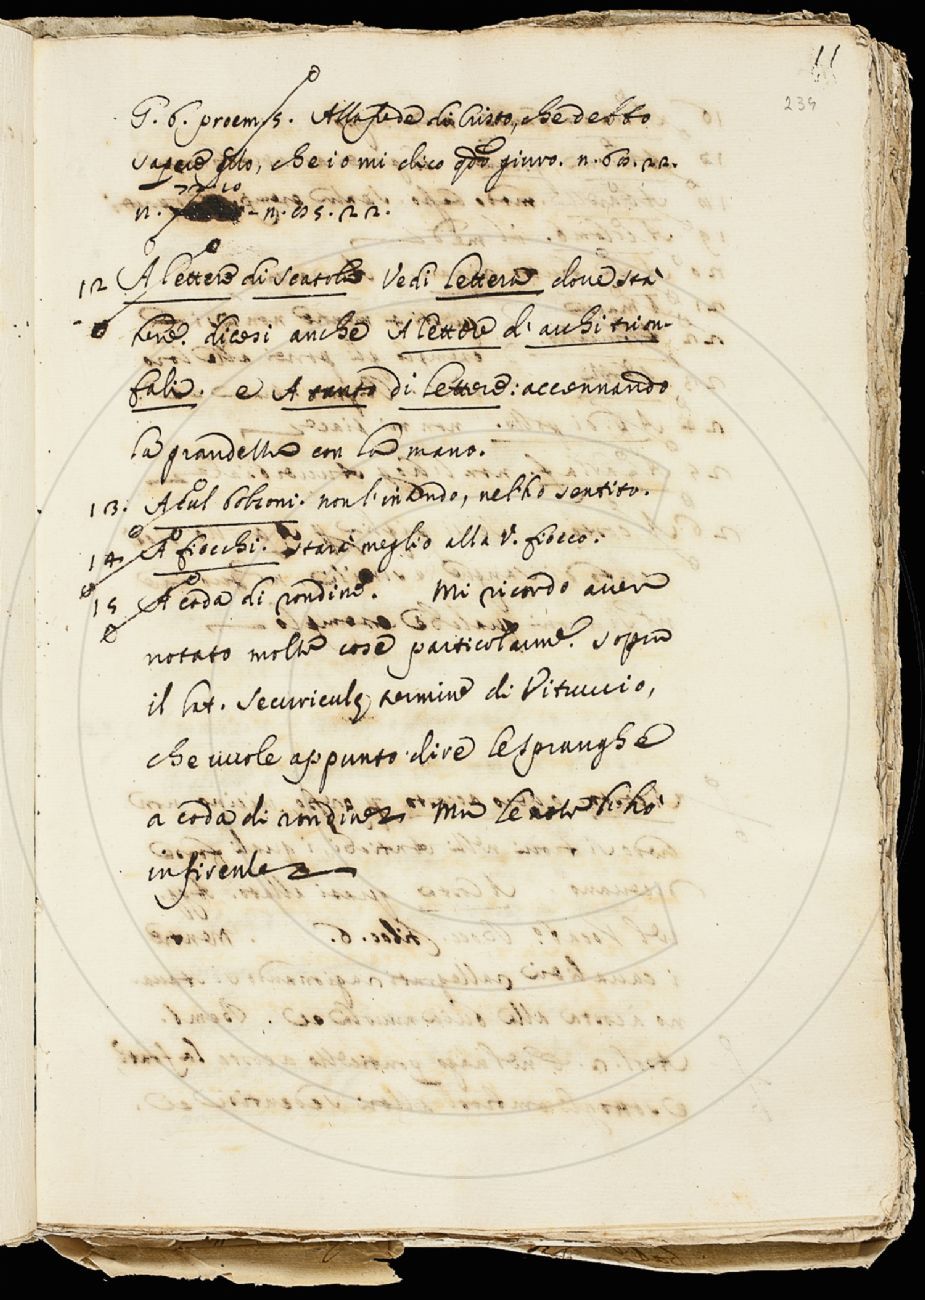 11
235
G. 6. proem. 5. Alla fede di Cristo, che debbo
sapere ello, che io mi dico qdo giuro. n. 60. 22.
n. 22. 10
n. 65. 22.
12 A lettere di scatole. Vedi lettera dove sta
bene. dicesi anche A lettere d'archi trion-
fali. e A tanto di lettere: accennando
la grandezza con la mano.
13. A cul bolzoni. non l'intendo, nè l'ho sentito.
14. A fiocchi. stara meglio alla V. fiocco.
15 A coda di rondine. Mi ricordo aver
notato molte cose particolarme. sopra
il lat. securicule termine di Vitruvio,
che vuole appunto dire le spranghe
a coda di rondine. Ma le note l'ho
in firenze